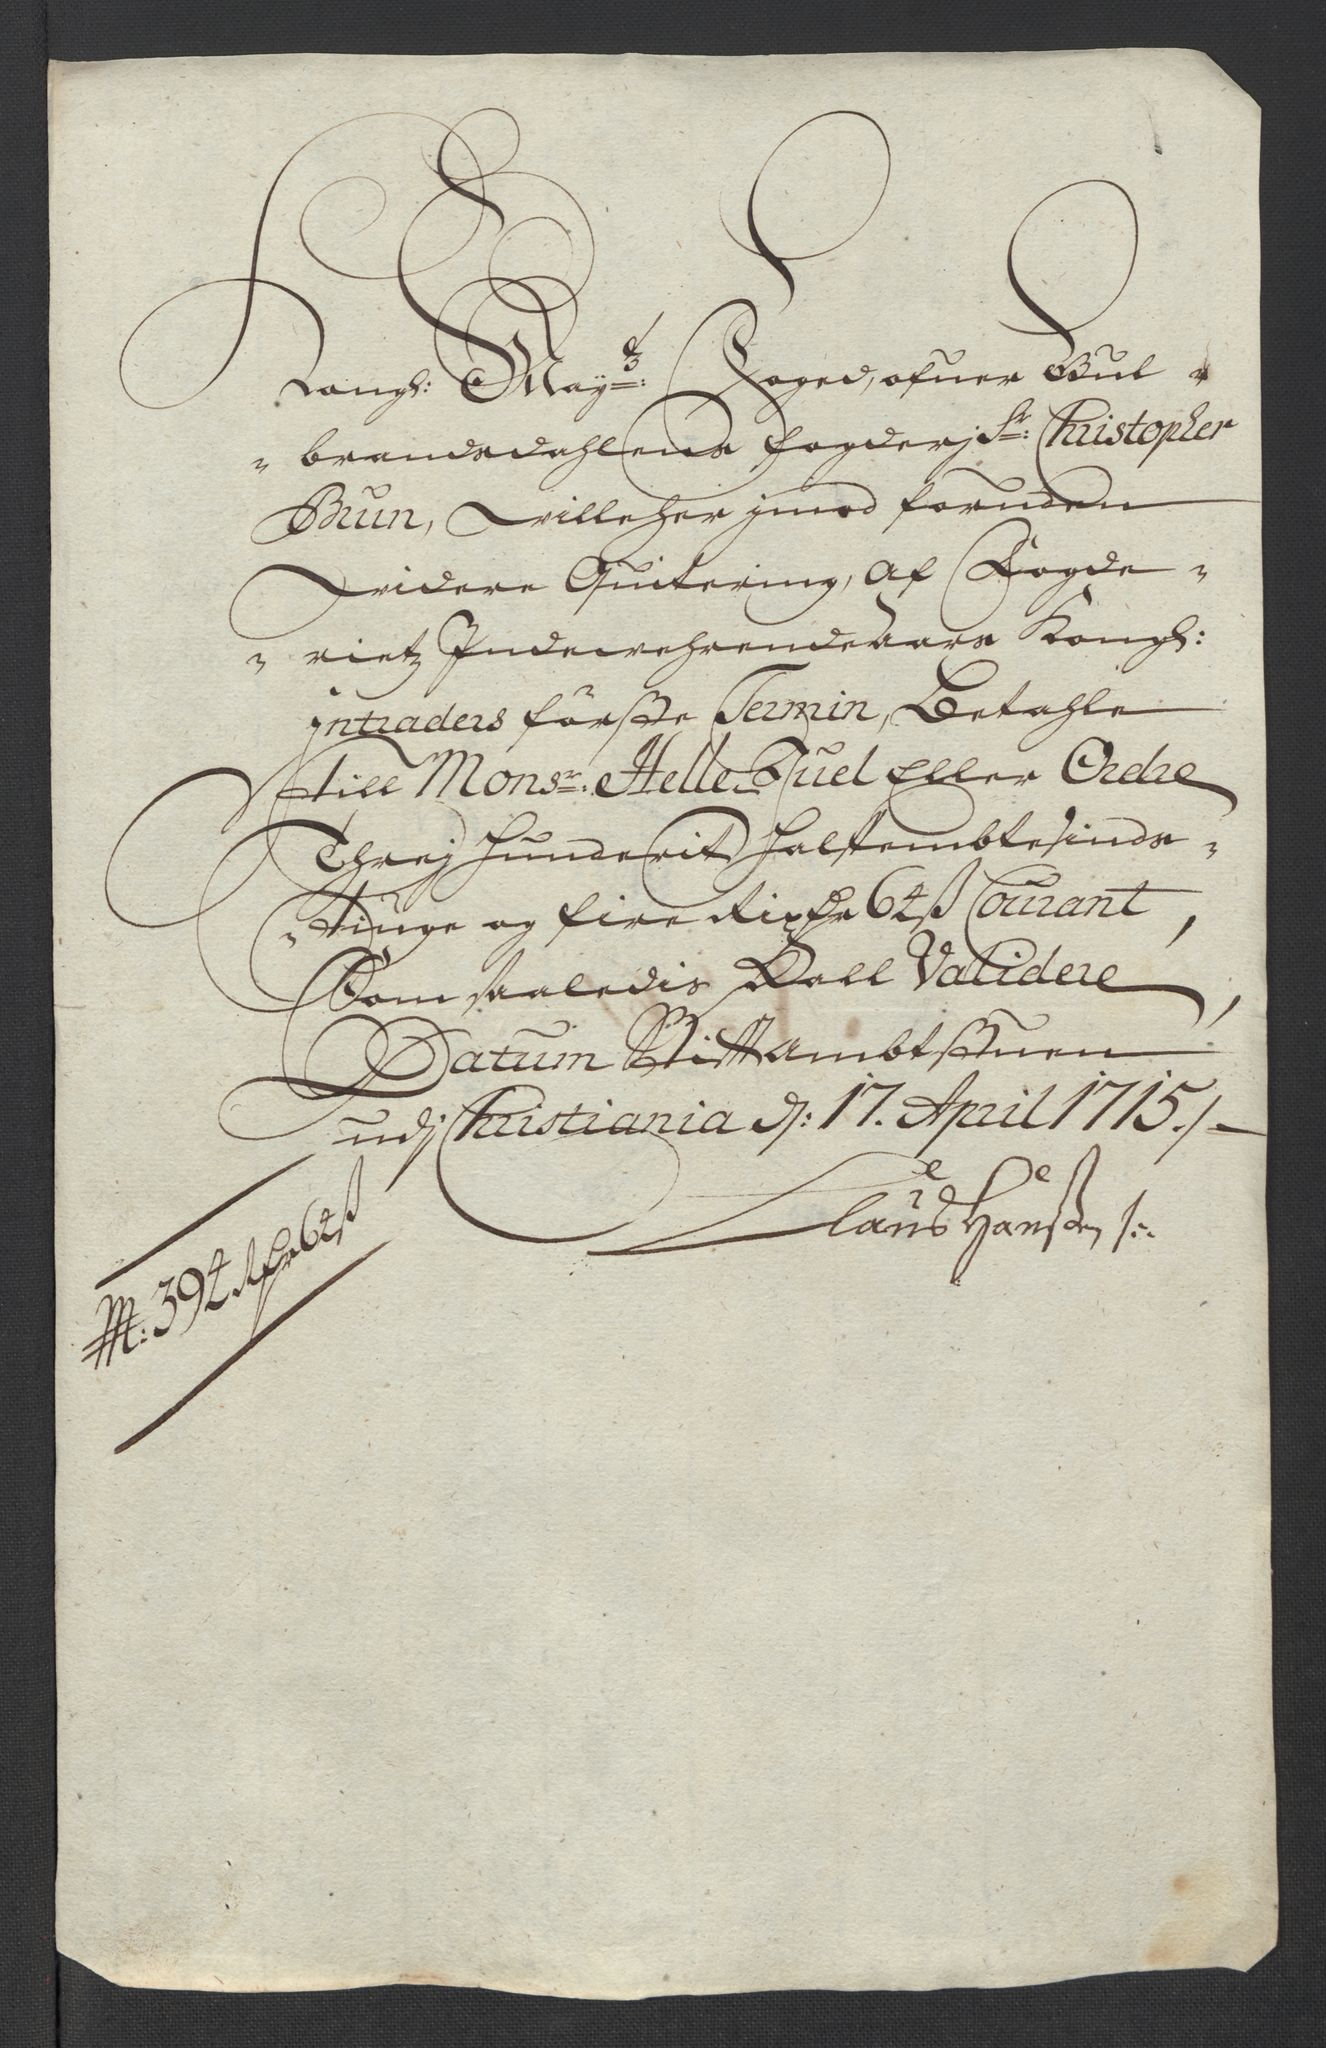 Kongl: May:tz Foged, ofuer Gul -
- brandsdahlens fogderj Sr: Christopher
Brun, Wille her jmod foruden
Widere Quitering, af Fogde -
- riet, Indewehrende aars Kongl:
jntraders förste Termin, Betahle
till Monsr: Helle Juel Eller Ordre
Threj hundrit halffembtesinds -
- tiuge og fire Rixdr 64 ß Courant,
Som saaledis skall Validere,
Datum Stifftambtstuen
udj Christiania d: 17. April 1715 ./-
Claus Hansen
394 Rdr 64 ß